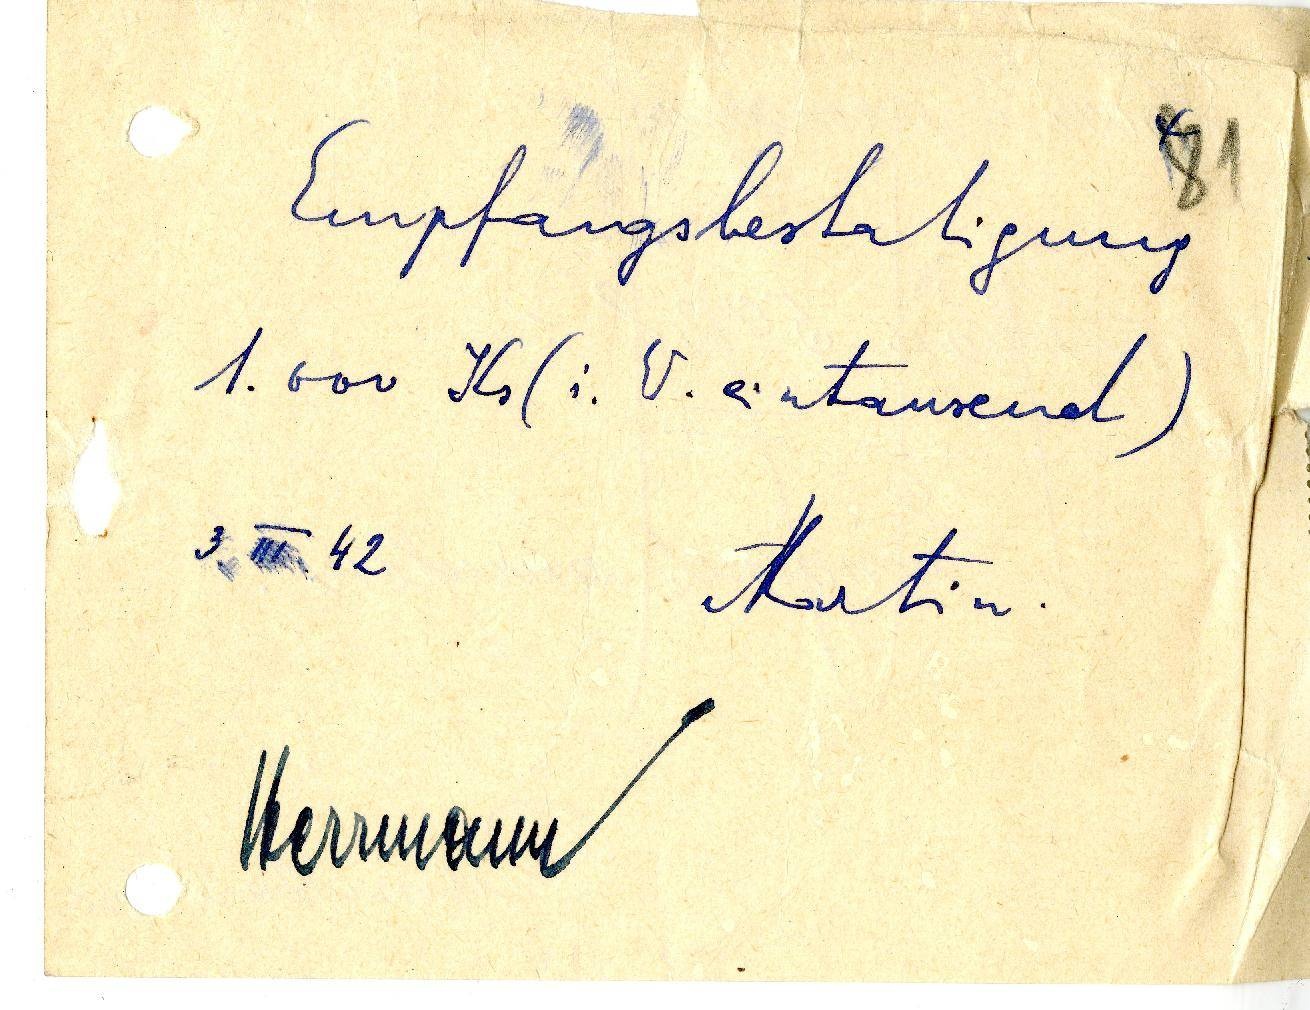 81
Empfangsbestatigung
1.000 Ks (i. V. eintausend)
3. III. 42
Martin.
Herrmann